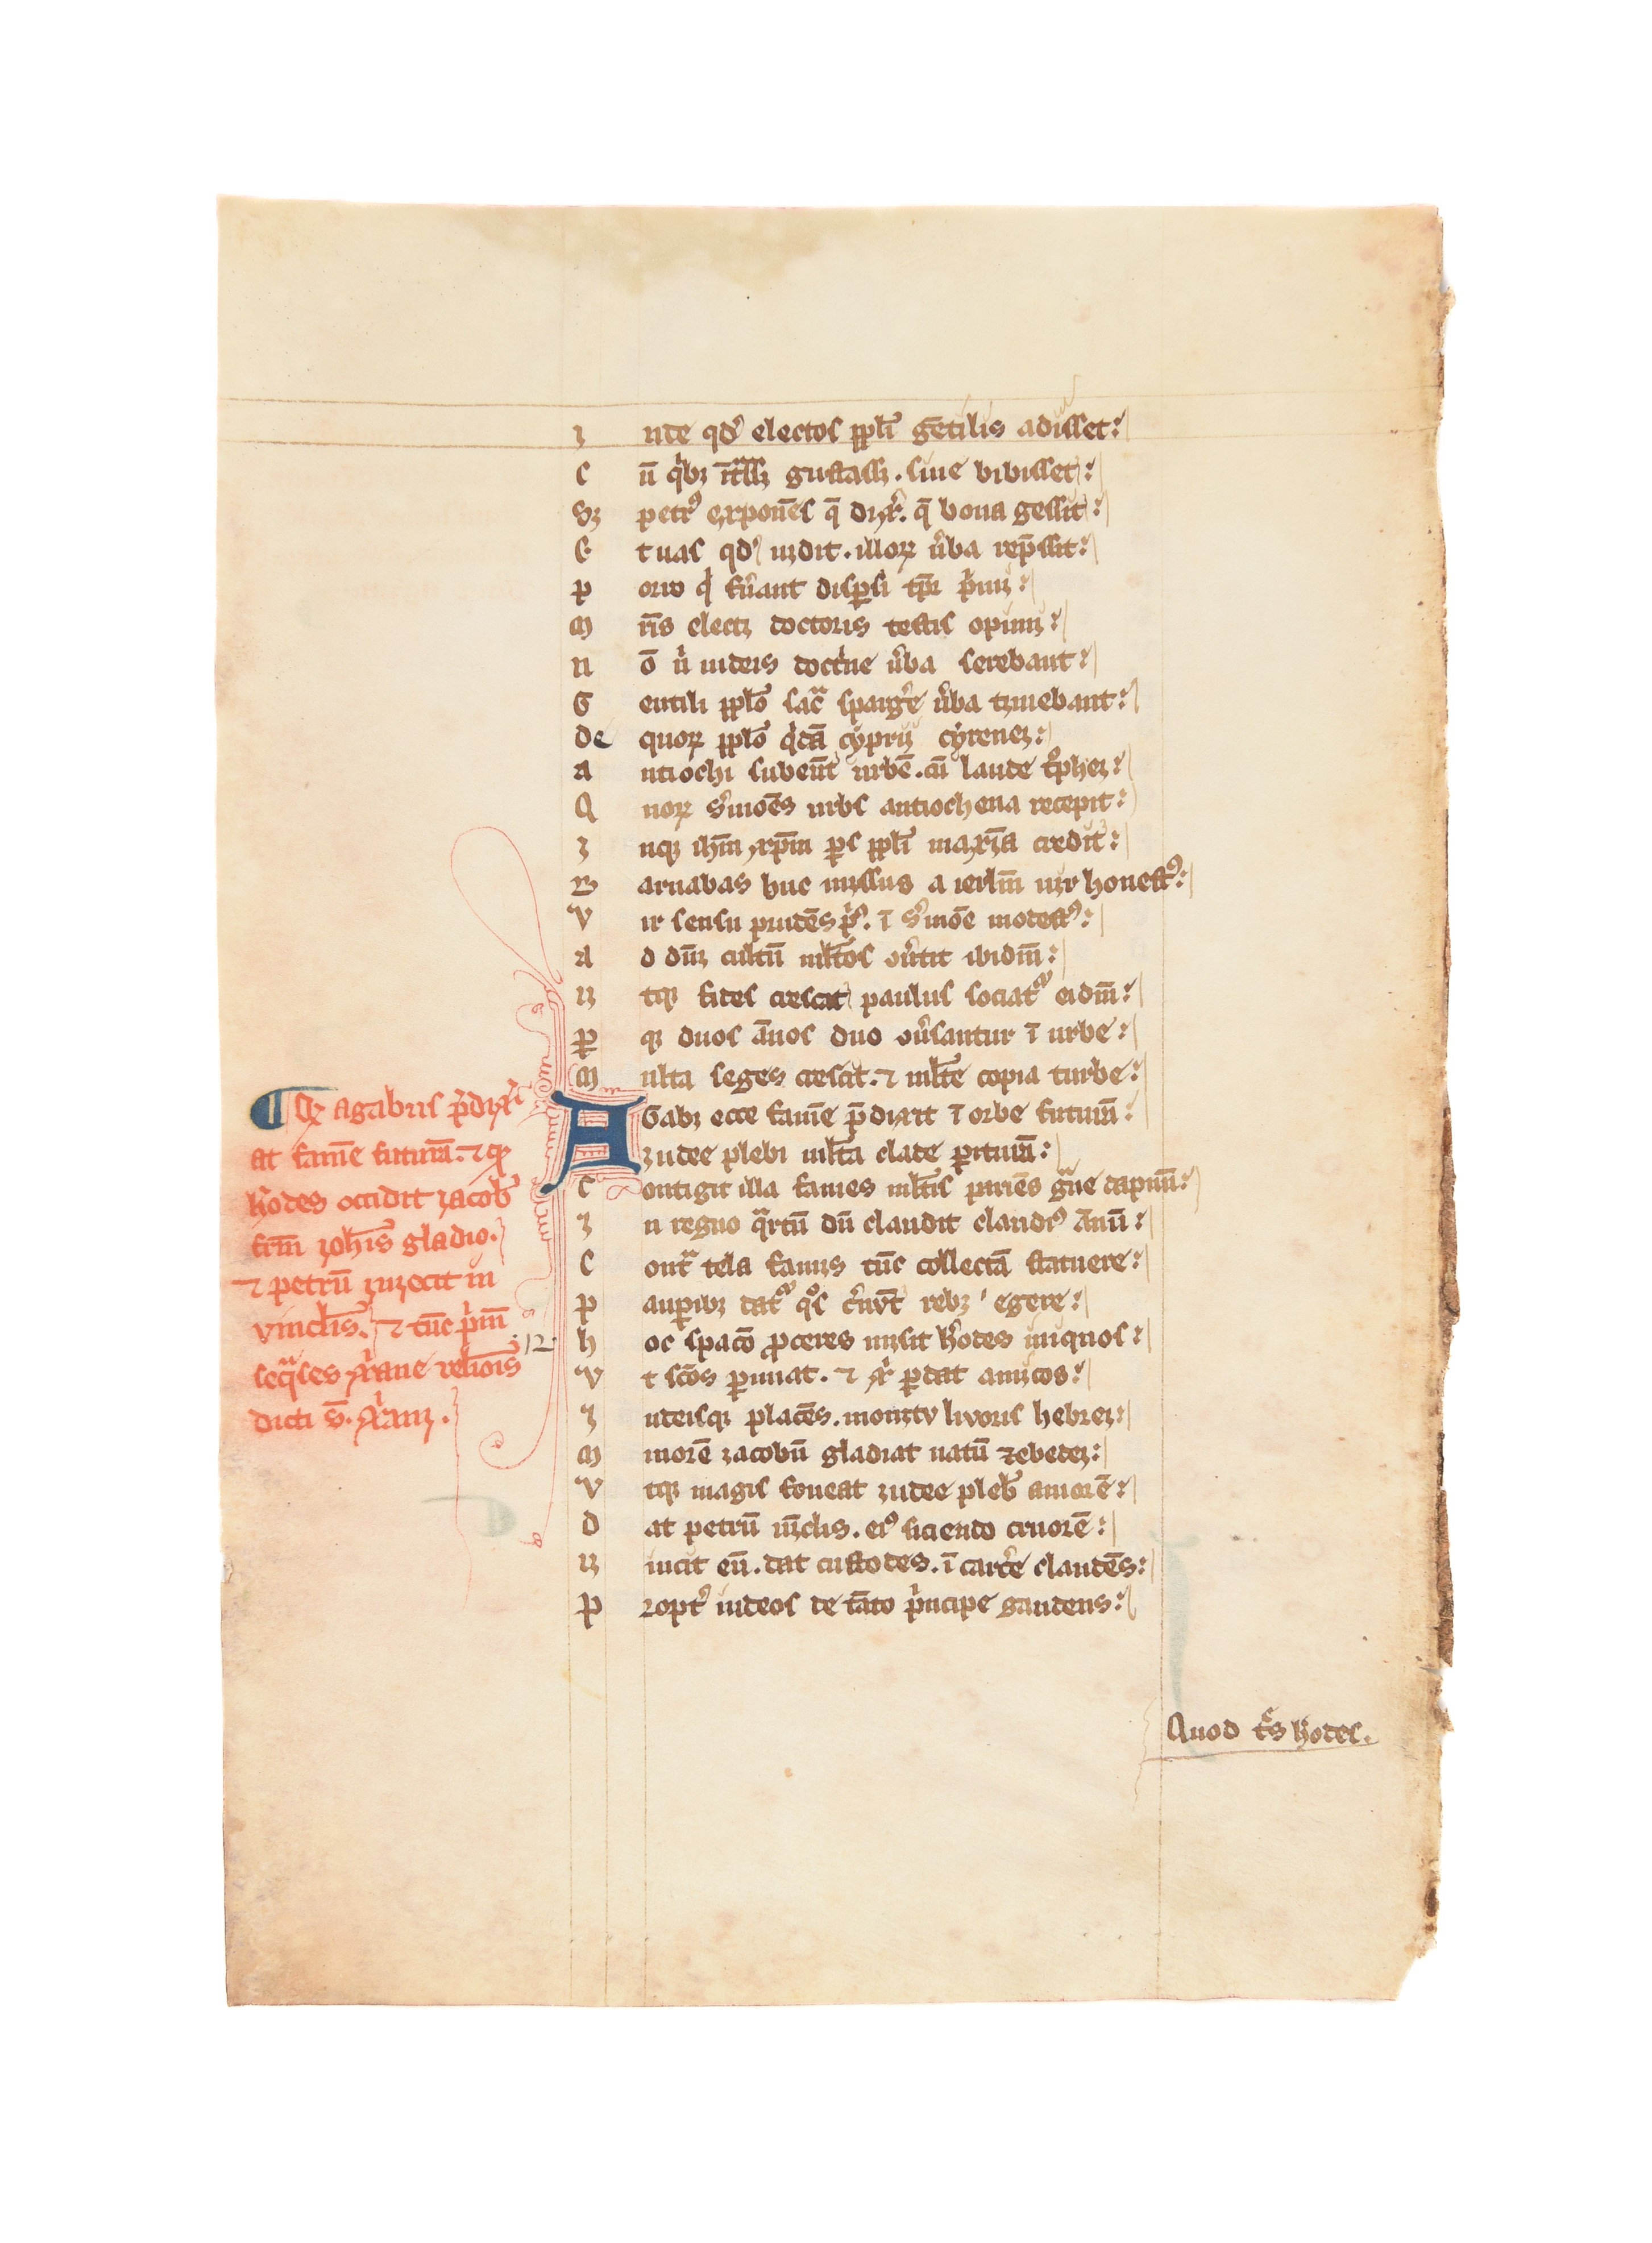 I nde qd' electos ppl'i ge̅tilis adisset:
C u̅ qibꝫ i̅trassꝫ gustassꝫ. siue bibisset:
Sꝫ petr9 expone̅s q̅ dixit. q̅ bona gessit:
E tuas qd' uidit. illoꝝ u'ba rep̅ssit:
P orro qi fu'ant disp̲si tp̅r p'mi:
M ris electi doctoris testis opimi:
N o̅ ni iudeis doct'ne u'ba serebant:
G entili pplo̅ sac̃ sparg'e u'ba timebant:
De quoꝝ pplo̅ qida̅ cyprii cyrenei:
A ntiochi subeu̅t urbe̅. cu̅ laude t'phei:
Q uoꝝ s'mo̅es urbs antiochena recepit:
I nqꝫ ih̅m xp̅m p̲s ppl'i maxi̅a credit:
B arnabas huc missus a ierl̅m uir honest9:
V ir sensu prude̅s pi9. i̅ s'mo̅e modest9:
A d du̅i cultu̅ mlt̅os ou'tit ibidm̅:
U tqꝫ fides crescit paulus sociat' eidm̅:
P̲ qꝫ duos a̅nos duo ou'santur i̅ urbe:
M ulta seges crescit. ⁊ mlt̅e copia turbe:
AGabꝫ ecce fame̅ p̅dixit i̅ orbe futura̅:
Iudee plebi mlt̅a clade p̲itura̅:
C ontigit illa fames mlt̅is parie̅s g̃ue dapnu̅:
I n regno q̃rtu̅ du̅ claudit claudi9 Annu̅:
C ont̃ tela famis tu̅c collecta̅ statuere:
P aup̲ibꝫ dat' qos c'nu̅t rebꝫ egere:
h oc spaco̅ p̲ceres misit h'odes iniquos:
V t sc̅os p̲imat. ⁊ xi p̲dat amicos:
I udeisqꝫ place̅s. monitu liuoris hebrei:
M inore̅ iacobu̅ gladiat natu̅ zebedei:
V tqꝫ magis foueat iudee pleb' amore̅:
D at petru̅ ui̅clis. ei9 siciendo cruore̅:
U incit eu̅. dat custodes. i̅ carc'e claude̅s:
P ropt' iudeos de ta̅to p'ncipe gaudens:
¶ Qꝫ agabus p'dixi
at fame̅ futura̅. ⁊ qꝫ
h'odes occidit iacob'
frm̅ ioh̅is gladio.
⁊ petru̅ iniecit in
vinclis. ⁊ tu̅c p'm̅
seq̃ces xi̅ane relio̅is
dicti s̅. xi̅ani.
12
Quod t's h'odes.